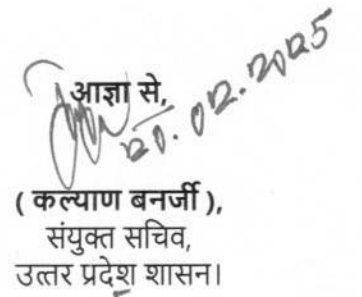 आज्ञा से,
20.02.2025
( कल्याण बनर्जी ),
संयुक्त सचिव,
उत्तर प्रदेश शासन।